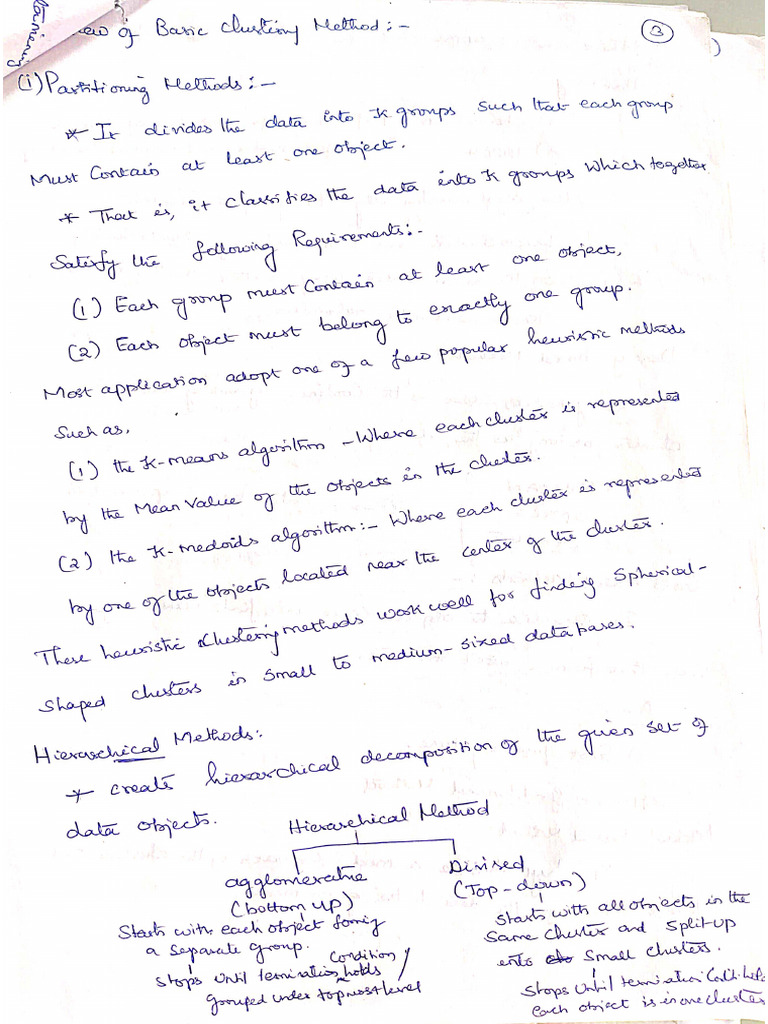 ew of Basic Clustering Method:-
3
(i) Partitioning Methods:-
* It divides the data into K groups such that each group
Must Contain at least one object.
* That is, it classifies the data into K groups Which together
Satisfy the following Requirements:-
(1) Each group must contain at least one object,
(2) Each object must belong to exactly one group.
Most application adopt one of a few popular heuristic methods
Such as,
(1) the K-means algorithm - Where each cluster is represented
by the Mean Value of the objects in the cluster.
(2) the K-medoids algorithm:- Where each cluster is represented
by one of the objects located near the center of the cluster.
These heuristic Clustering methods work well for finding Spherical-
Shaped clusters in small to medium-sized databases.
Hierarchical Methods:
* create hierarchical decomposition of the given set of
data objects.
Hierarchical Method
agglomerative
(bottom up)
Starts with each object formig
a separate group.
Stops Until termination Condition holds
grouped under topmost level
Divised
(Top-down)
Starts with all objects in the
Same Cluster and Split up
into Small Clusters.
Stops Until termination
each object is in one cluster